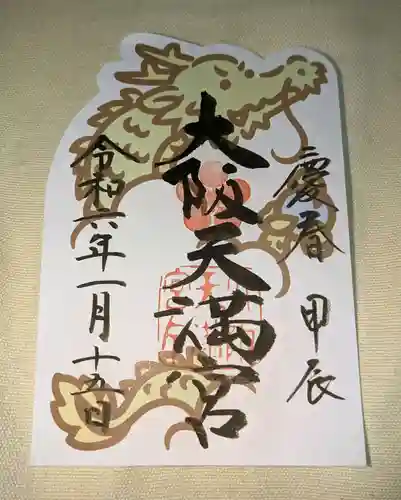 慶春 甲辰
大阪天満宮
令和六年一月十五日